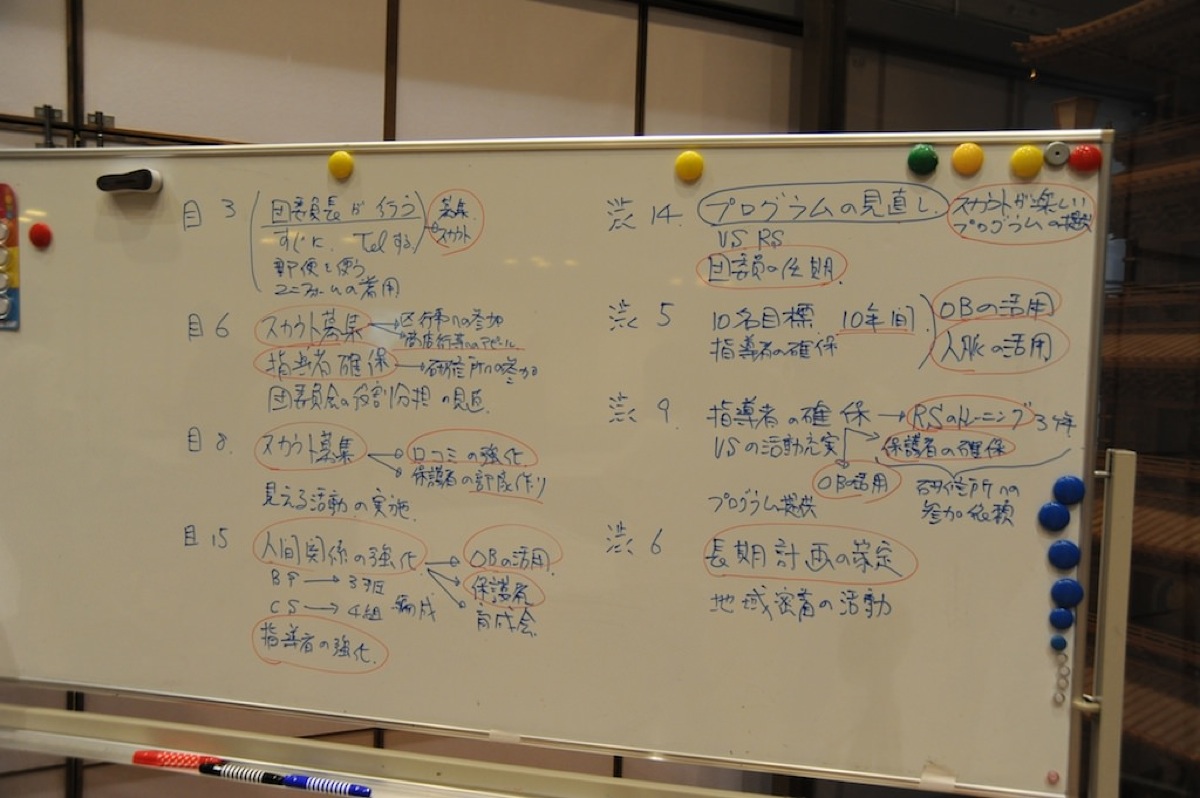 目 3 団委員長が行う 募集
すぐに Telする スカウト
郵便を使う
ユニフォームの着用
目 6 スカウト募集 → 区行事への参加
→ 商店行事へのアピール
指導者確保 → 研修所への参加
団委員会の役割分担の見直
目 8. スカウト募集 → 口コミの強化
→ 保護者の部屋作り
見える活動の実施
目 15 人間関係の強化 → OBの活用
→ 保護者
→ 育成会
BP → 3班
CS → 4組 編成
指導者の強化
渋 14. プログラムの見直し スカウトが楽しい
プログラムの提供
VS RS
団委員の任期
渋 5 10名目標 10年間 OBの活用
指導者の確保 人脈の活用
渋 9 指導者の確保 → RSのトレーニング
VSの活動充実 → 保護者の確保
OB活用 研修所への
参加依頼
プログラム提供
渋 6 長期計画の策定
地域密着の活動